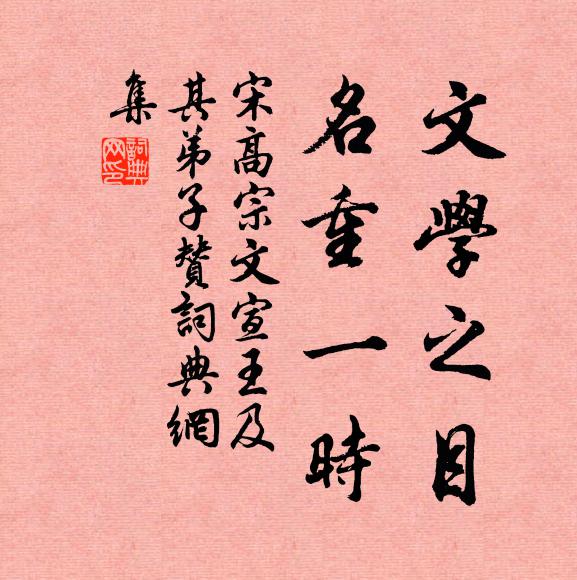 文學之目
名重一時
宋高宗文宣王及
其弟子贊詞典網
集
詞典網印